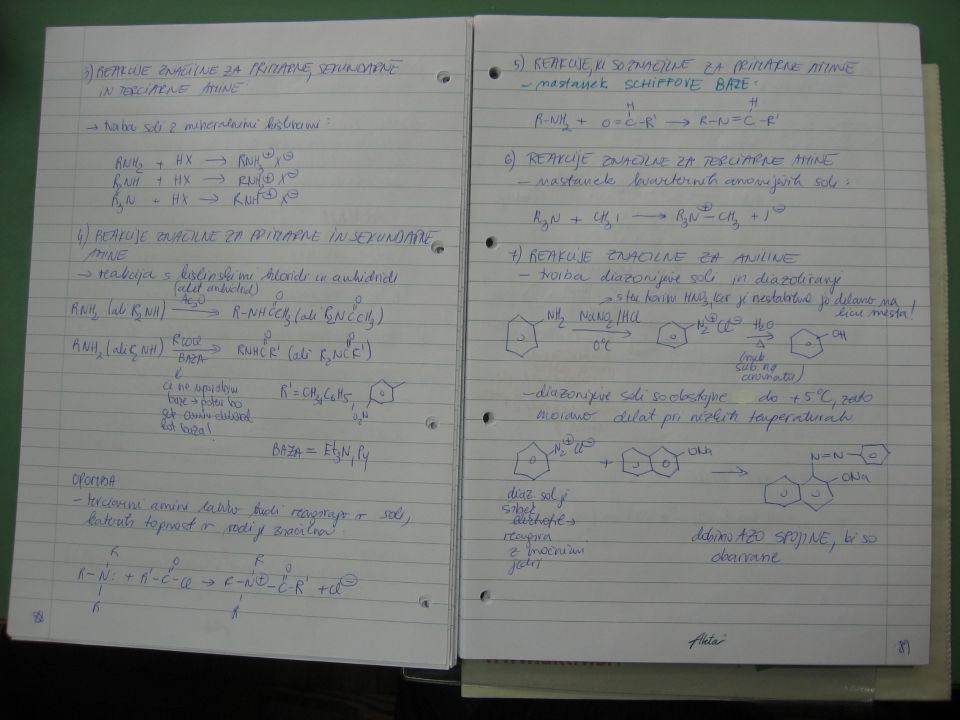 3) REAKCIJE ZNAČILNE ZA PRIMARNE, SEKUNDARNE
IN TERCIARNE AMINE:
→ tvorba soli z mineralnimi kislinami:
RNH2 + HX → RNH3⊕ X⊖
R2NH + HX → RNH⊕ X⊖
R3N + HX → RNH⊕ X⊖
4) REAKCIJE ZNAČILNE ZA PRIMARNE IN SEKUNDARNE
AMINE
→ reakcija s kislinskimi kloridi in anhidridi
(acet anhidrid)
RNH2 (ali R2NH) Ac2O → R-NHCCH3 (ali R2NCCH3)
O O
RNH2 (ali R2NH) R'COCl → RNHCR' (ali R2NCR')
O O
BAZA
če ne uporabim
baze → potem bo
kot baza!
R' = CH3, C6H5,
O2N
BAZA = Et3N, Py
OPOMBA
- terciarni amini lahko tudi reagirajo v soli,
katerih topnost v vodi je značilna
R O R O
R-N: + R'-C-Cl → R-N⊕-C-R' + Cl⊖
R R
88
5) REAKCIJE, KI SO ZNAČILNE ZA PRIMARNE AMINE
- nastanek SCHIFFOVE BAZE:
H H
R-NH2 + O=C-R' → R-N=C-R'
6) REAKCIJE ZNAČILNE ZA TERCIARNE AMINE
- nastanek kvarternih amonijevih soli:
R3N + CH3I → R3N⊕-CH3 + I⊖
7) REAKCIJE ZNAČILNE ZA ANILINE
- tvorba diazonijeve soli in diazotiranje
→ s tem tvorim HNO2, ker je nestabilna jo delamo na
licu mesta!
NH2 NaNO2/HCl → N2⊕Cl⊖ H2O → OH
0°C Δ
(nuk.
sub. na
aromatu)
- diazonijeve soli so obstojne do +5°C, zato
moramo delat pri nizkih temperaturah
N2⊕Cl⊖ + ONa → N=N
ONa
diaz. sol je
šibek
elektrofil →
reagira
z močnimi
jedri
dobimo AZO SPOJINE, ki so
obarvane
Akta
89